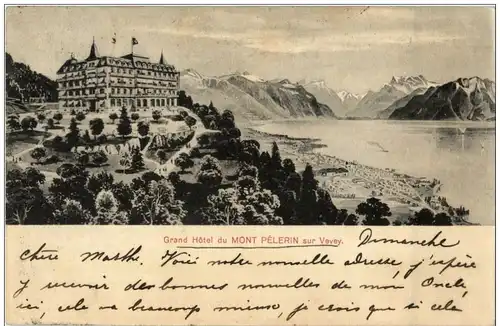 Grand Hôtel du MONT PÈLERIN sur Vevey.
Dimanche
Chère Marthe. Voici notre nouvelle adresse, j'espère
y recevoir des bonnes nouvelles de mon Oncle,
ici, cela va beaucoup mieux, je crois que si cela